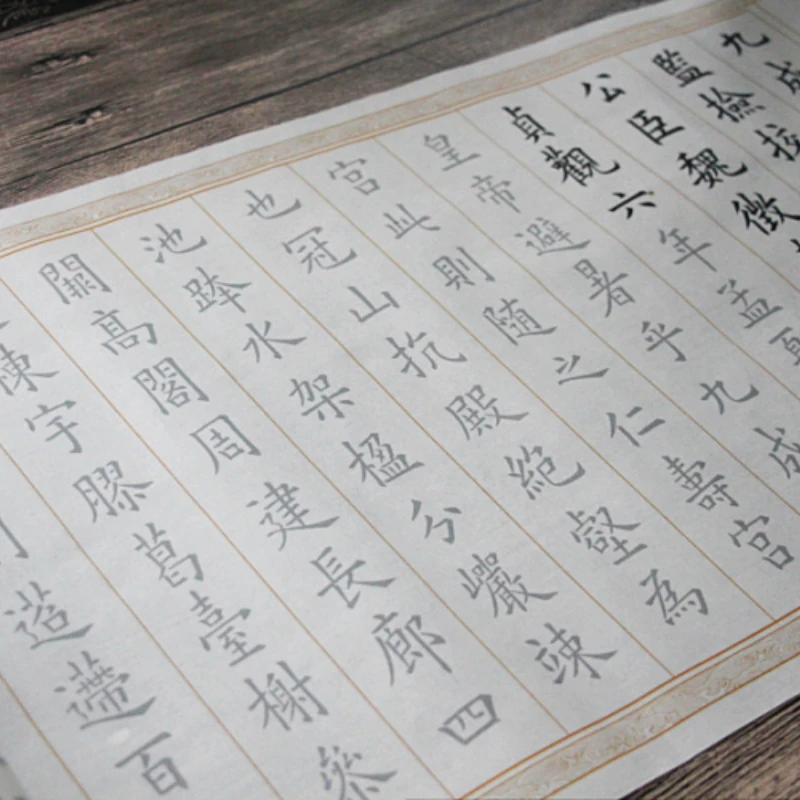 九成
監檢校
公臣魏徵
貞觀六年孟夏
皇帝避暑乎九成
宮此則随之仁壽宮
也冠山抗殿絕壑為
池跨水架楹分巖竦
闕高閣周建長廊四
棟宇膠葛臺榭參
迢遰百